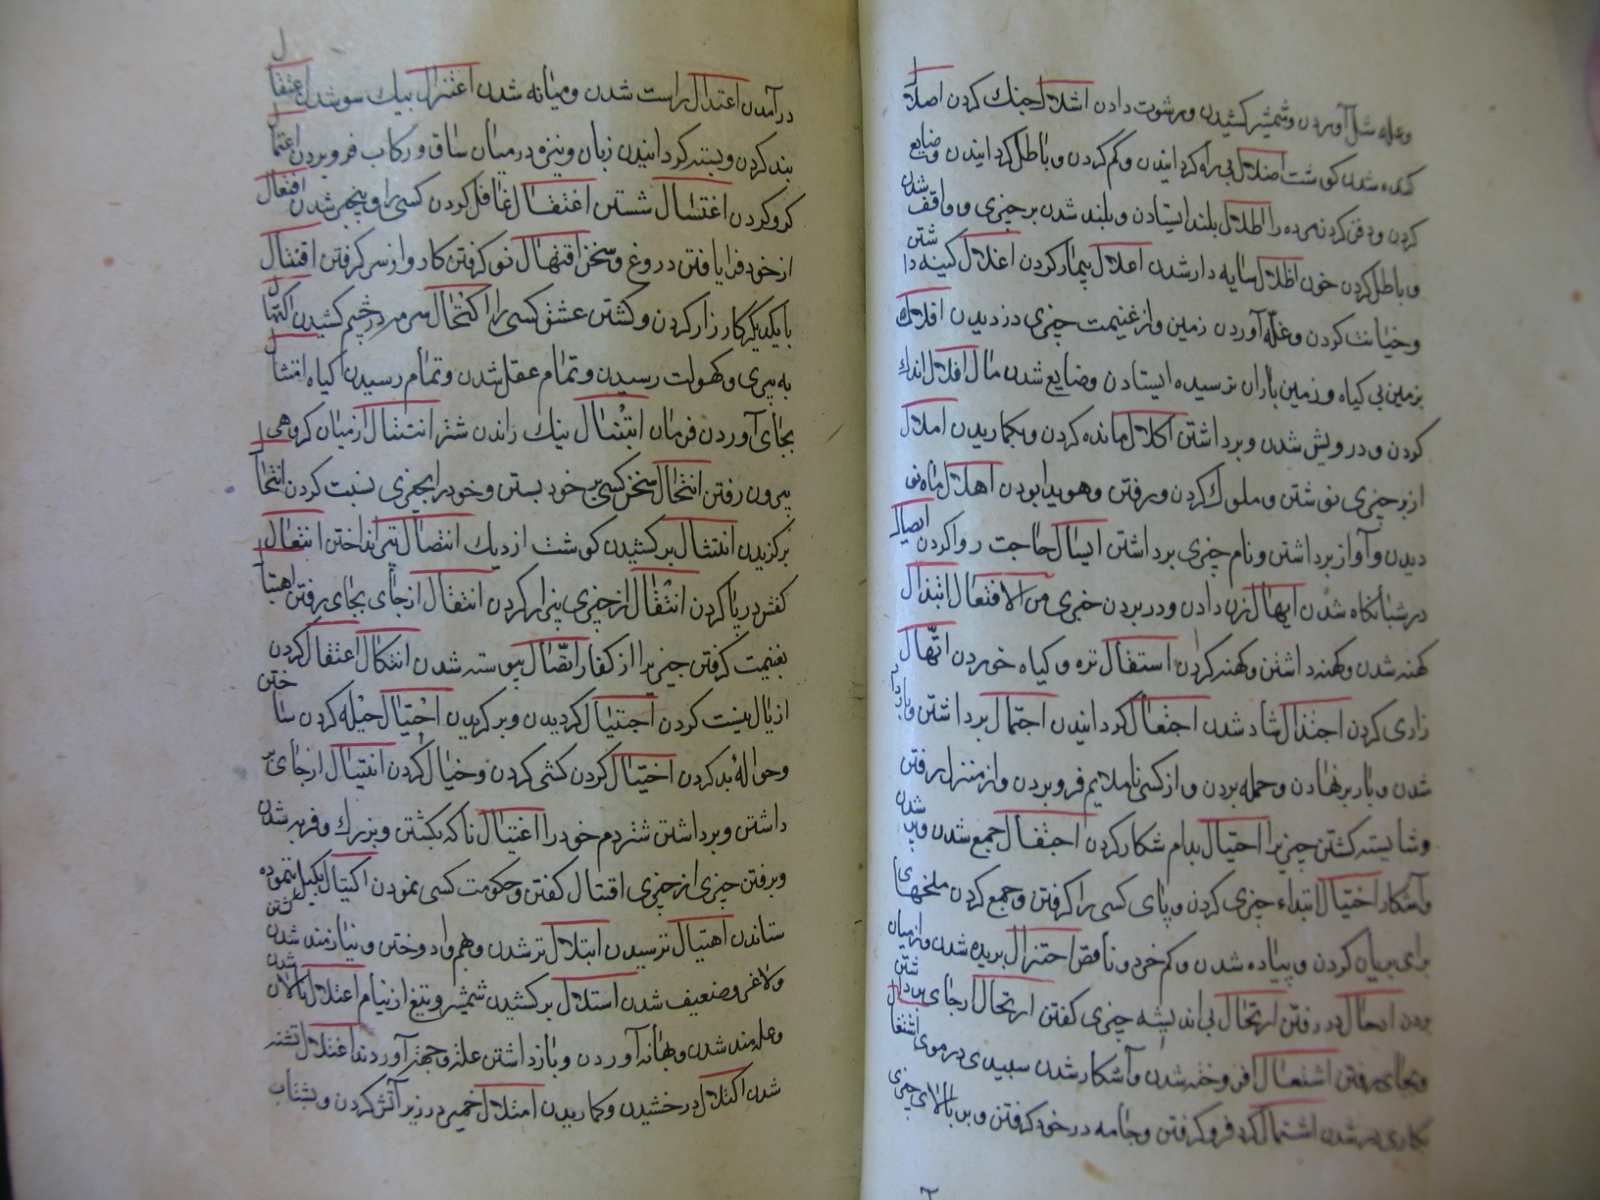 وعله شل آوردن وشمشیر کشیدن ورشوت دادن اشلال جنك کردن اصلال
کنده شدن کوشت اضلال بی راه کردانیدن وکم کردن وباطل کردانیدن وضایع
کردن ودفن کردن مرده را اطلال بلند ایستادن وبلند شدن بر چیزی وواقف شدن
وباطل کردن خون اظلال سایه دار شدن اعلال بیمار کردن اغلال کینه داشتن
وخیانت کردن وغله آوردن زمین واز غنیمت چیزی دزدیدن افلال
بزمین بی کیاه وزمین باران نرسیده ایستادن وضایع شدن مال اقلال اندك
کردن ودرویش شدن وبرداشتن اکلال مانده کردن املال
از بر چیزی نوشتن وملول کردن ورفتن وهویدا بودن اهلال ماه نو
دیدن وآواز برداشتن ونام چیزی برداشتن ایسال حاجت روا کردن ایصال
در شبانکاه شدن ایهال زن دادن ودر بردن من الافتعال ابتذال
کهنه شدن وکهنه داشتن وکهنه کردن تره وکیاه خوردن ابتهال
زاری کردن اجتذال شاد شدن اجتعال کردانیدن احتمال برداشتن
شدن وبار بر نهادن وحمله بردن واز کسی ناملایم فرو بردن واز منزل رفتن
وشایسته کشتن چیزیرا احتبال بدام شکار کردن احتفال جمع شدن
وآشکار ابتداء چیزی کردن وپای کسی را کرفتن وجمع کردن ملخهای
برای بریان کردن وپیاده شدن وکم خرد وناقص احتزال بریده شدن واز میان
بودن در رفتن ارتجال بی اندیشه چیزی کفتن ارتحال از جای برداشتن
وبجای رفتن اشتعال افروخته شدن وآشکار شدن سپیدی در موی اشتغال
بکاری در شدن اشتمال کرد فرو کرفتن وجامه در خود کرفتن وبر بالای چیزی
در آمدن اعتدال راست شدن ومیانه شدن اعتزال بیك سو شدن اعتقال
بند کردن وبسته کردانیدن زبان ونیزه در میان ساق ورکاب فرو بردن اعتمال
کرو کردن اغتسال شستن اغتفال غافل کردن کسی را وبیخبر شدن افتعال
از خود فرا یافتن دروغ وسخن نو کرفتن کار واز سر کرفتن اقتتال
با یکدیکر کارزار کردن وکشتن عشق کسی را اکتحال سرمه در چشم کشیدن اکتهال
به پیری وکهولت رسیدن وتمام عقل شدن وتمام رسیدن کیاه امتثال
بجای آوردن فرمان نیك راندن شتر انتثال از میان کروهی
بیرون رفتن انتحال سخن کسی بر خود بستن وخود را بچیزی نسبت کردن انتخال
برکزیدن انتشال برکشیدن کوشت از دیك انتضال تیر انداختن انتعال
کفش در پا کردن انتفال از چیزی بیزار کردن انتقال از جای بجای رفتن اهتبال
بغنیمت کرفتن چیزیرا از کفار اتصال پیوسته شدن اتکال اعتفال کردن
ازیال نیست کردن اجتیال کردیدن وبرکزیدن احتیال حیله کردن ساختن
وحوالۀ بد کردن اختیال کردن کشی کردن وخیال کردن انتیال از جای بر
داشتن وبرداشتن شتر دم خود را اغتیال ناکه بکشتن وبزرك وفربه شدن
وبر رفتن چیزی از چیزی اقتیال کفتن وحکومت کسی نمودن اکتیال بکیل نموده
ستاندن اهتیال ترسیدن ابتلال تر شدن وهم وادوختن ونیازمند شدن کشتن
ولاغر وضعیف شدن استلال برکشیدن شمشیر وتیغ از نیام اعتلال نالان شدن
وعله مند شدن وبهانه آوردن وباز داشتن اغتلال تشنه
شدن اکتلال درخشیدن امتلال خمیر در زیر آتش کردن وبشتاب